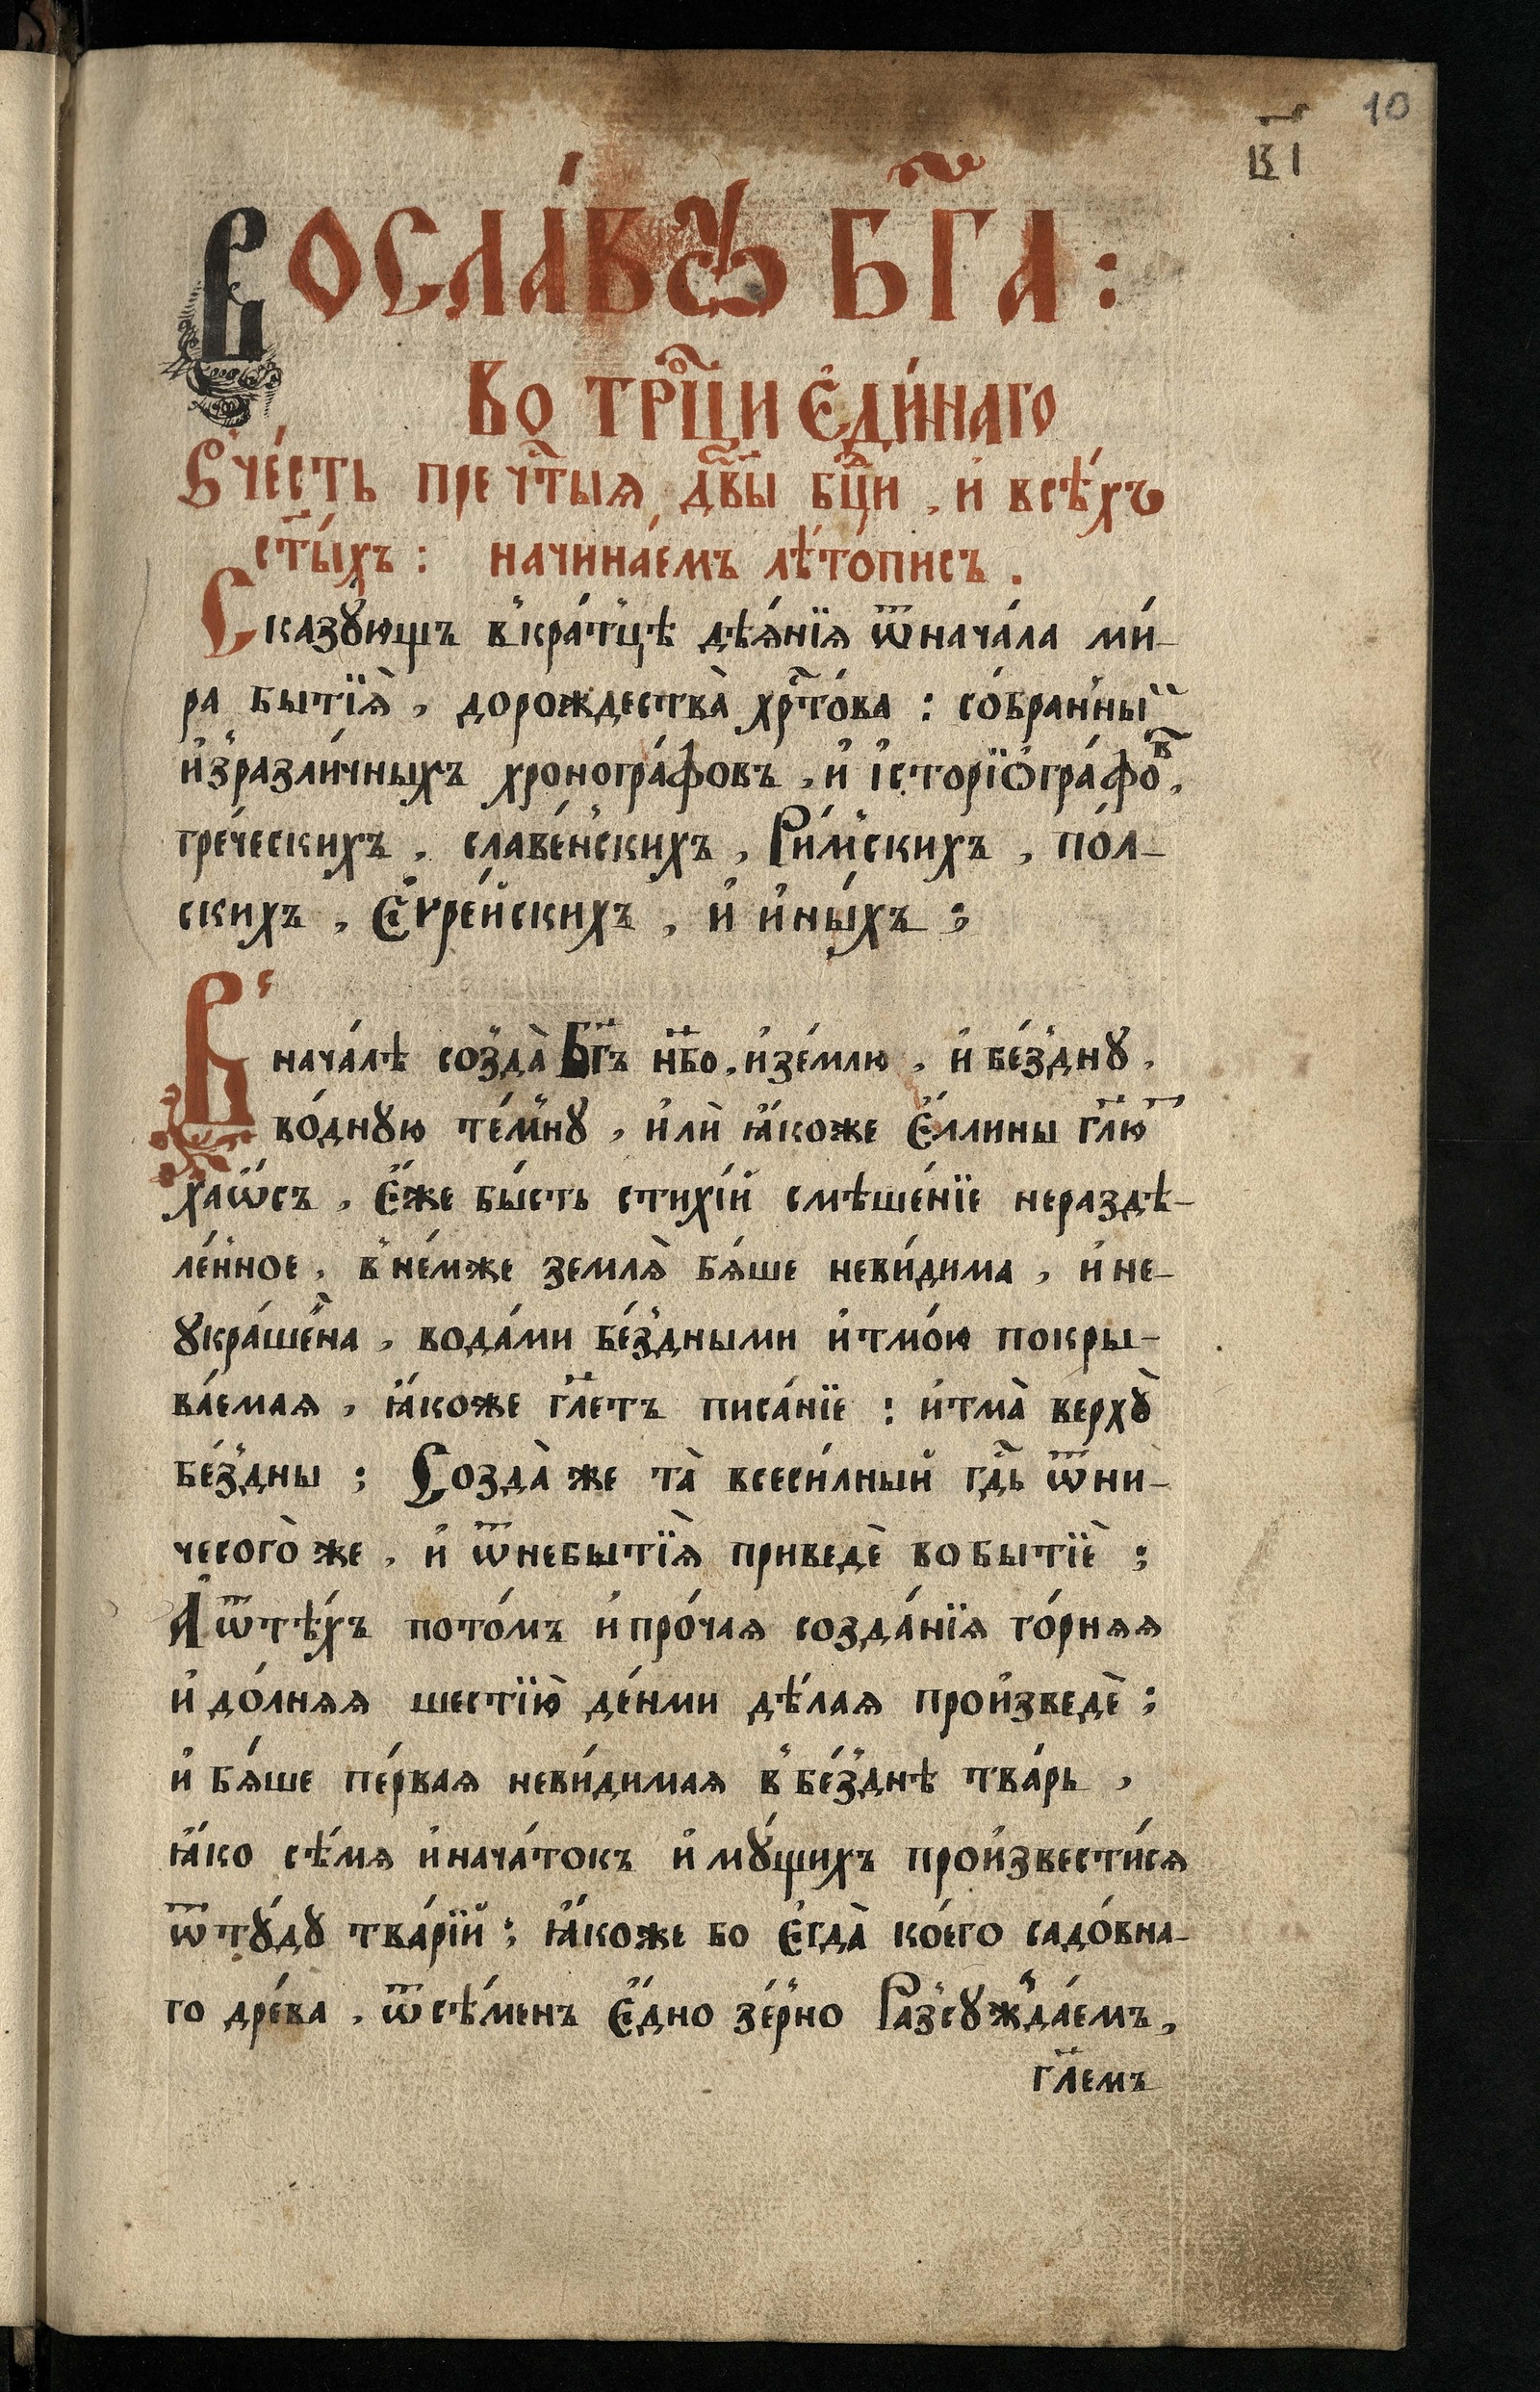 10
в҃і
Восла́вꙋ бг҃а :
Во тр҃ци є҆ди́наго
В̾че́сть преч҃тыѧ дв҃ы бц҃и , и҆ всѣ́хъ
ст҃ы́хъ : начина́емъ лѣ́топись .
Сказꙋ́ющъ в̾кра́тцѣ дѣѧ́нїѧ ѿнача́ла ми́-
ра бытїѧ̀ , дорождества̀ хрⷭ҇то́ва : со́бран̾ный
и҆з̾разли́чныхъ хроногра́фовъ , и҆ і҆сторїѡгра́фоⷡ҇ ,
гре́ческихъ , славе́нскихъ , Ри́мскихъ , по́л-
скихъ , Є҆ѵре́йскихъ , и҆ и҆ны́хъ ;
В̾
нача́лѣ созда̀ Бг҃ъ нб҃о , и҆зе́млю , и҆ бе́зднꙋ ,
во́днꙋю те́мнꙋ , и҆лѝ ꙗ҆́коже Є҆́ллины гл҃юⷮ
ха́ѡсъ , є҆́же бы́сть стихі́й смѣше́нїе нераздѣ-
ле́нное , в̾не́мже землѧ̀ бѧ́ше неви́дима , и҆ не-
ꙋкра́шена , вода́ми бе́здными и҆тмо́ю покры-
ва́емаѧ , ꙗ҆́коже гл҃етъ писа́нїе : и҆тма̀ верхꙋ̀
бе́здны ; Созда̀ же та̀ всеси́лный гдⷭ҇ь ѿни-
чесого̀ же , и҆ ѿнебытїѧ̀ приведѐ во бытїѐ ;
А҆ ѿтѣ́хъ пото́мъ и҆про́чаѧ созда́нїѧ го́рнѧѧ
и҆ до́лнѧѧ шестїю̀ де́нми дѣ́лаѧ произведѐ ;
и҆ бѧ́ше пе́рваѧ неви́димаѧ в̾ бе́зднѣ тва́рь ,
ꙗ҆́ко сѣ́мѧ и҆нача́токъ и҆мꙋ́щихъ произвести́сѧ
ѿтꙋ́дꙋ тва́рїй ; ꙗ҆́коже бо є҆гда̀ ко́его садо́вна-
го дре́ва , ѿсѣ́менъ є҆́дно зе́рно Раз̾сꙋжда́емъ ,
гл҃емъ